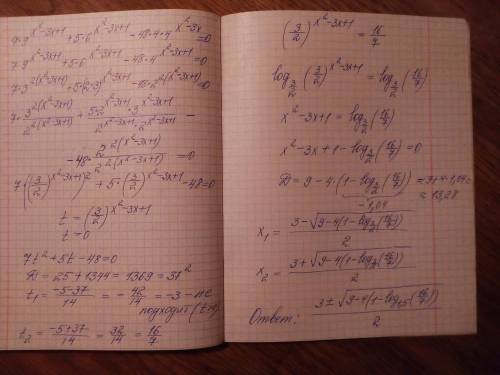 7·9^(x²-3x+1) + 5·6^(x²-3x+1) - 48·4·4^(x²-3x) = 0
7·9^(x²-3x+1) + 5·6^(x²-3x+1) - 48·4^(x²-3x+1) = 0
7·3^(2(x²-3x+1)) + 5·(2·3)^(x²-3x+1) - 48·2^(2(x²-3x+1)) = 0
7·3^(2(x²-3x+1))/2^(2(x²-3x+1)) + 5·2^(x²-3x+1)·3^(x²-3x+1)/(2^(x²-3x+1)·2^(x²-3x+1)) -
-48·2^(2(x²-3x+1))/2^(2(x²-3x+1)) = 0
7·((3/2)^(x²-3x+1))² + 5·(3/2)^(x²-3x+1) - 48 = 0
t = (3/2)^(x²-3x+1)
7t² + 5t - 48 = 0
D = 25 + 1344 = 1369 = 37²
t₁ = (-5-37)/14 = -42/14 = -3 - не
подходит
t₂ = (-5+37)/14 = 32/14 = 16/7
(3/2)^(x²-3x+1) = 16/7
log_(3/2) (3/2)^(x²-3x+1) = log_(3/2) (16/7)
x² - 3x + 1 = log_(3/2) (16/7)
x² - 3x + 1 - log_(3/2) (16/7) = 0
D = 9 - 4·(1 - log_(3/2) (16/7)) = 9 + 4·1,04 =
-1,04 = 13,28
x₁ = (3 - √(9 - 4(1 - log_(3/2) (16/7))))/2
x₂ = (3 + √(9 - 4(1 - log_(3/2) (16/7))))/2
Ответ: (3 ± √(9 - 4(1 - log_1,5 (16/7))))/2